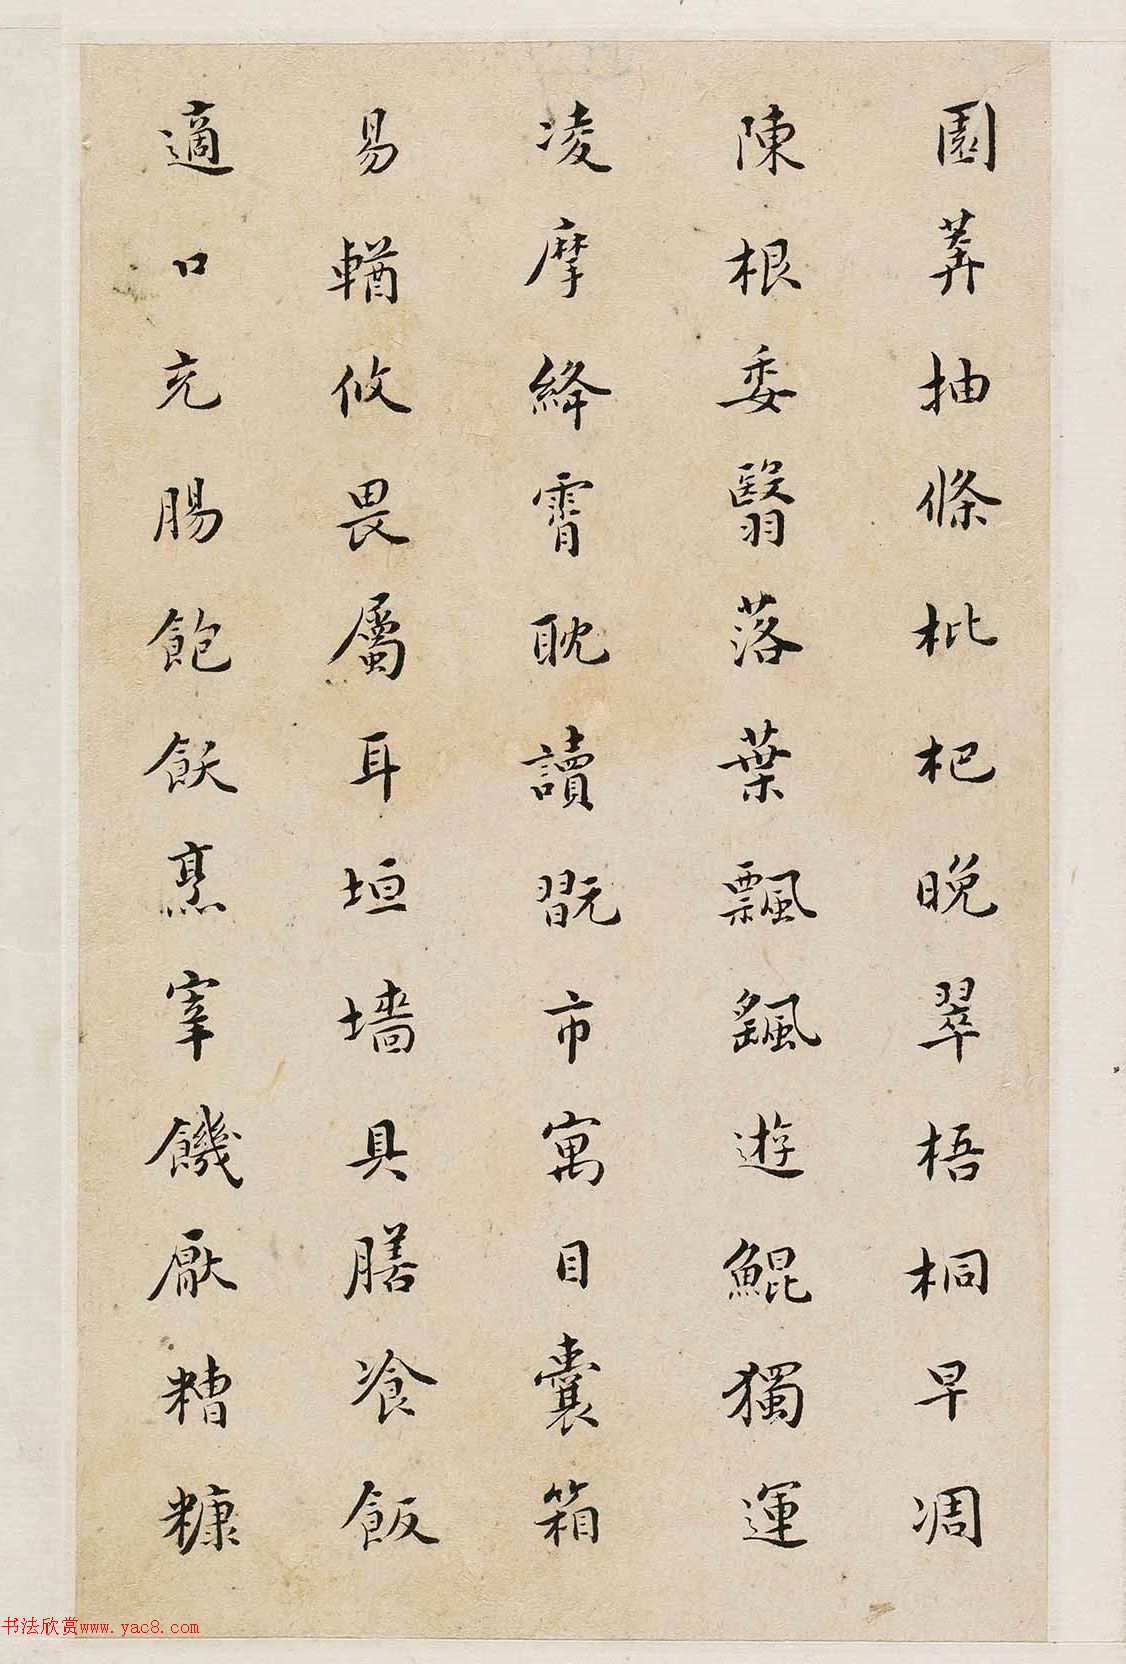 園莽抽條枇杷晚翠梧桐早凋
陳根委翳落葉飄颻遊鯤獨運
凌摩絳霄耽讀翫市寓目囊箱
易輶攸畏屬耳垣墻具膳飡飯
適口充腸飽飫烹宰饑厭糟糠
书法欣赏www.yac8.com